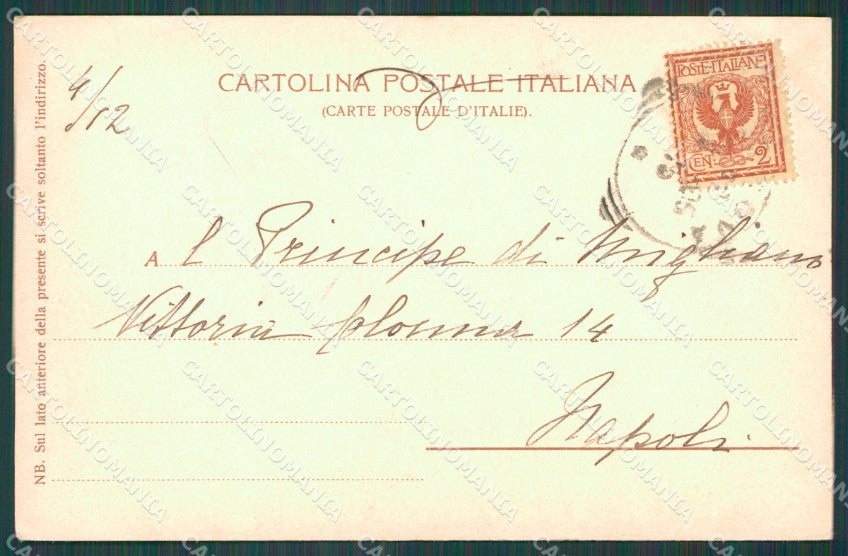 CARTOLINA POSTALE ITALIANA
(CARTE POSTALE D'ITALIE).
POSTE·ITALIANE
CEN. 2
4/12
A l Principe di
Vittoria Colonna 14
Napoli
NB. Sul lato anteriore della presente si scrive soltanto l'indirizzo.
CARTOLINOMANIA